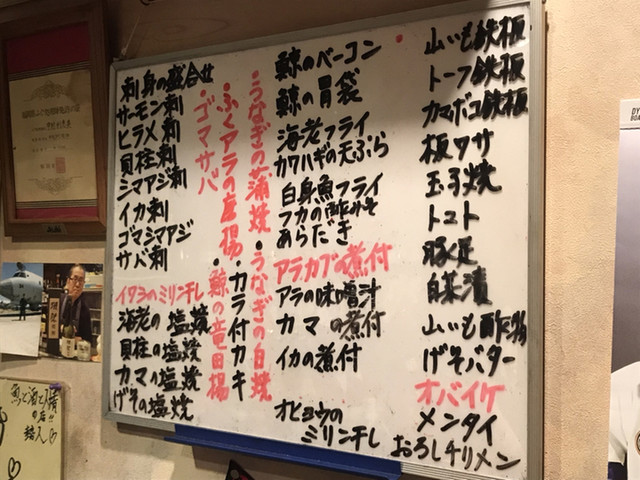 刺身の盛合せ
サーモン刺
ヒラメ刺
貝柱刺
シマアジ刺
イカ刺
ゴマシマアジ
サバ刺
イワシのミリン干し
海老の塩焼
貝柱の塩焼
カマの塩焼
げその塩焼
・うなぎの蒲焼
・うなぎの白焼
・ふくアラの唐揚
・カラ付カキ
・ゴマサバ
・鯨の竜田揚
鯨のベーコン
鯨の胃袋
海老フライ
カワハギの天ぷら
白身魚フライ
フカの酢みそ
あらだき
アラカブの煮付
アラの味噌汁
カマの煮付
イカの煮付
オヒョウの
ミリン干し
山いも鉄板
トーフ鉄板
カマボコ鉄板
板ワサ
玉子焼
トマト
豚足
白菜漬
山いも酢物
げそバター
オバイケ
メンタイ
おろしチリメン
魚と酒と人情
の店!!